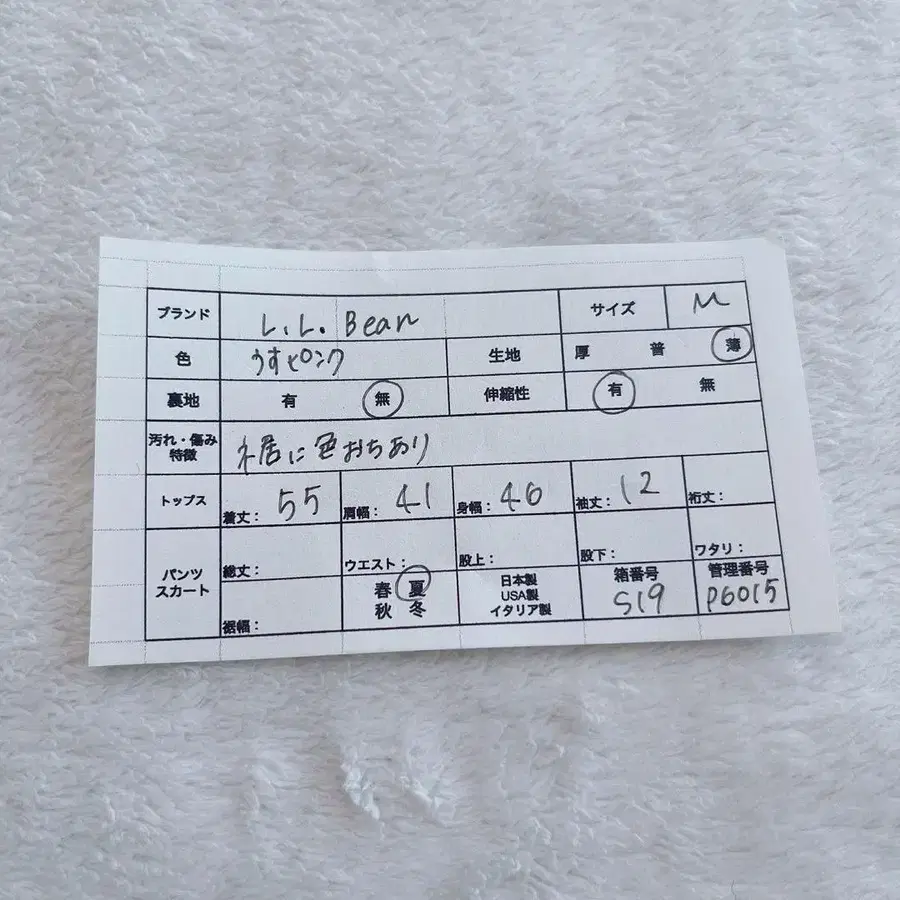 ブランド L.L. Bean サイズ M
色 うすピンク 生地 厚 普 薄
裏地 有 無 伸縮性 有 無
汚れ・傷み
特徴 に色おちあり
トップス 着丈: 55 肩幅: 41 身幅: 46 袖丈: 12 裄丈:
パンツ
スカート 総丈: ウエスト: 股上: 股下: ワタリ:
裾幅: 春 夏
秋 冬
日本製
USA製
イタリア製
箱番号
S19
管理番号
P6015